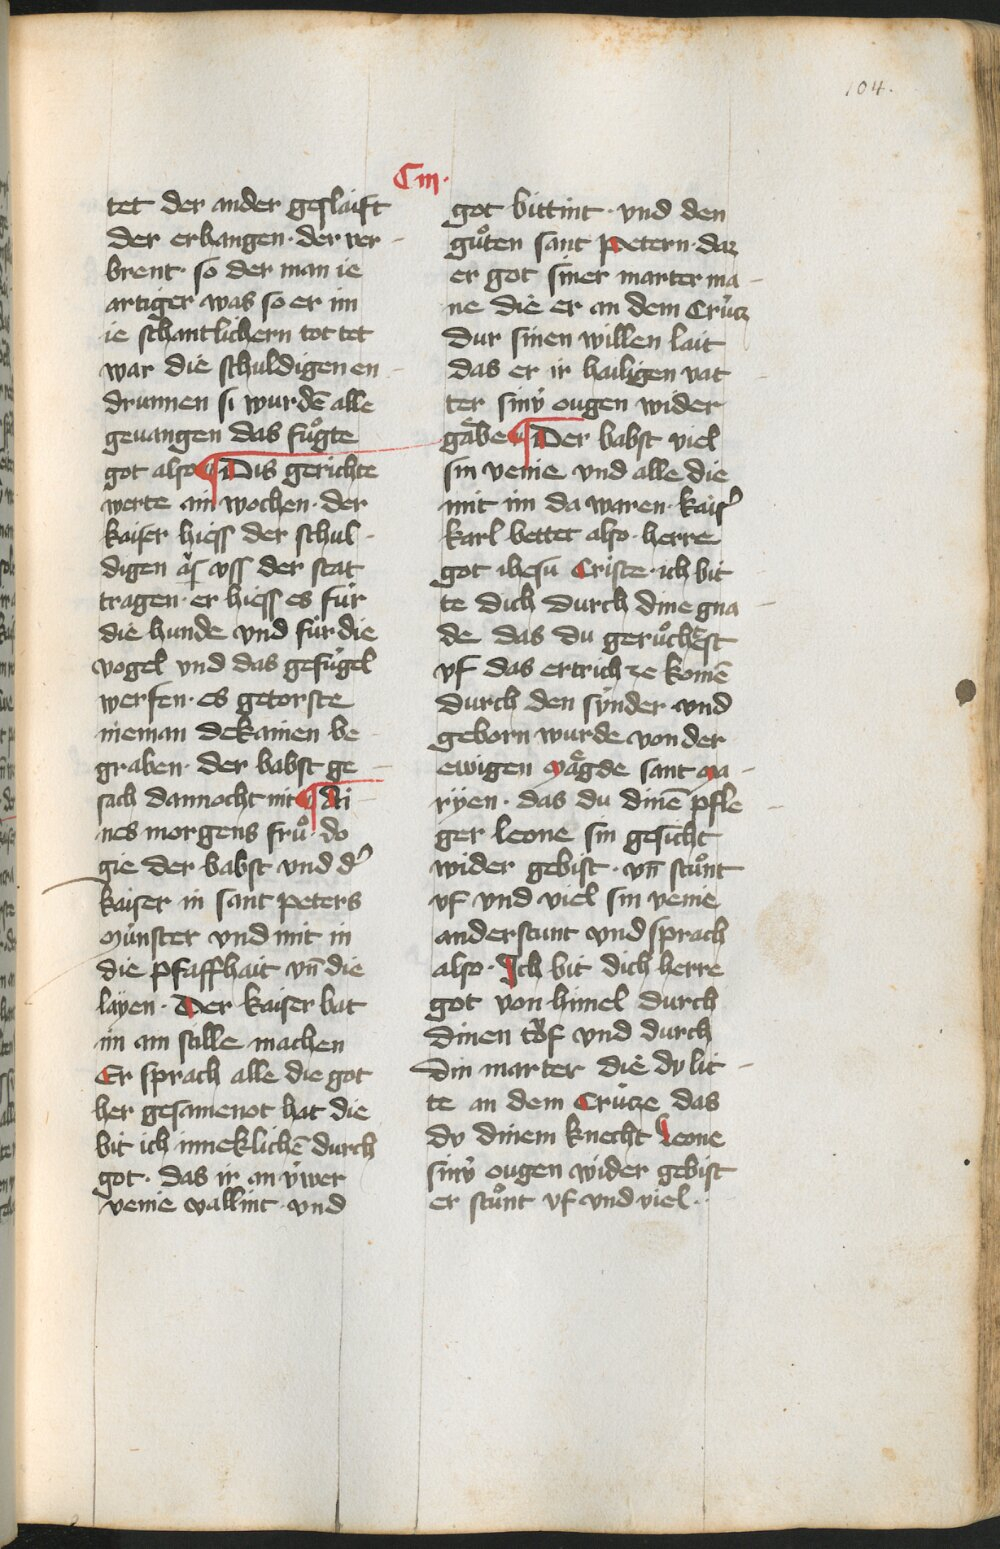 104.
Ciij.
tet der ander geslaift
der erhangen · der ver-
brent · so der man ie
artiger was so er im
ie schantlichern tot tet
war die schuldigen en-
drunnen si wurdē alle
geuangen das fuͦgte
got also ¶ Dis gerichte
werte ain wochen · der
kaiser hiess der schul-
digen aͤs uss der stat
tragen · er hiess es fúr
die hunde vnd fúr die
vogel vnd das gefúgel
werfen · es getorste
nieman dekainen be-
graben · der babst ge-
sach dannocht nit ¶ Ai-
nes morgens fruͦ · do
gie der babst vnd d'
kaiser in sant peters
múnster vnd mit in
die pfaffhait vn̄ die
layen · Der kaiser bat
im ain stille machen
Er sprach alle die got
her gesamenot hat die
bit ich inneklichē durch
got · das ir an v́wer
venie vallint · vnd
got bittint · vnd den
guͦten sant petern · daz
er got siner marter ma-
ne die er an dem Crúcz
dur sinen willen lait
das er ir hailigen vat-
ter sinv́ ougen wider
gaͤbe ¶ Der babst viel
sin venie vnd alle die
mit im da waren · kais'
karl bettet also · herre
got ihesu Criste · ich bit-
te dich durch dine gna-
de das du geruͦchest
vf das ertrich ze komē
durch den súnder · vnd
geborn wurde von der
ewigen maͤgde sant ma-
ryen · das du dinē pfle-
ger leone sin gesicht
wider gebist · vn̄ stuͦnt
vf vnd viel sin venie
anderstunt vnd sprach
also · Ich bit dich herre
got von himel durch
dinen toͮf vnd durch
din marter die dv lit-
te an dem Crúcze das
dv dinem knecht Leone
sinv́ ougen wider gebist
er stuͦnt vf vnd viel ·